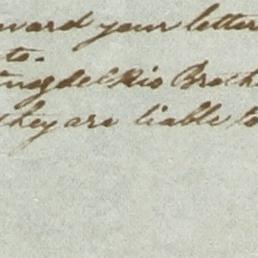 ward your letter
to.
del Rio Broth
they are liable to